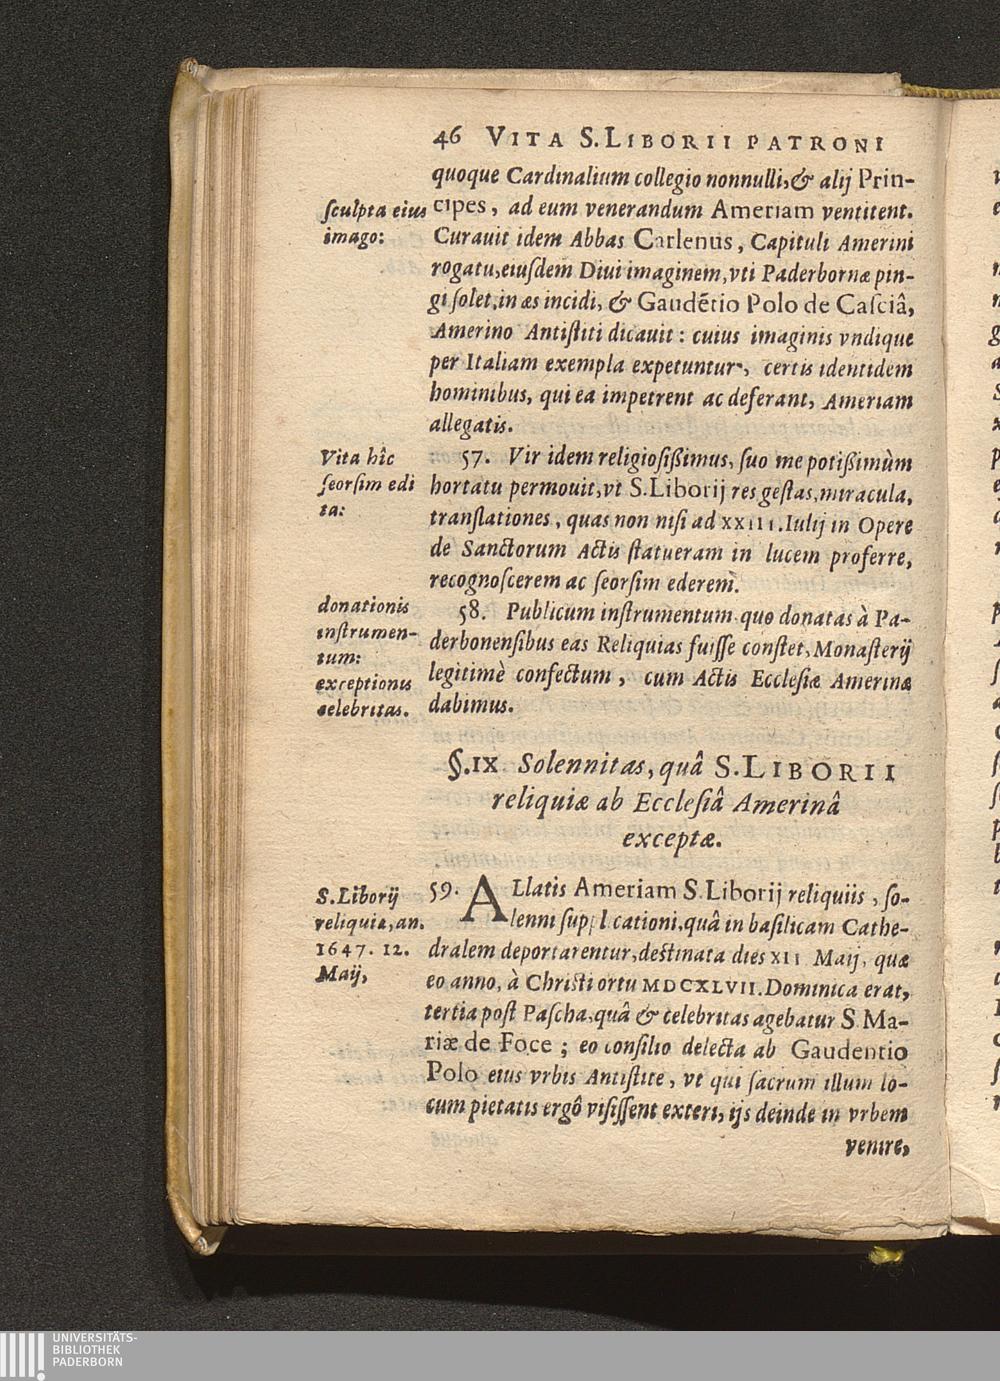 46 VITA S. LIBORII PATRONI
quoque Cardinalium collegio nonnulli, & alij Prin-
cipes, ad eum venerandum Ameriam ventitent.
sculpta eius
imago:
Curauit idem Abbas Carlenus, Capituli Amerini
rogatu, eiusdem Diui imaginem, vti Paderbornæ pin-
gi solet, in æs incidi, & Gaudẽtio Polo de Casciâ,
Amerino Antistiti dicauit: cuius imaginis vndique
per Italiam exempla expetuntur, certis identidem
hominibus, qui ea impetrent ac deferant, Ameriam
allegatis.
Vita hîc
seorsim edi
ta:
57. Vir idem religiosißimus, suo me potißimùm
hortatu permouit, vt S. Liborij res gestas, miracula,
translationes, quas non nisi ad XXIII. Iulij in Opere
de Sanctorum Actis statueram in lucem proferre,
recognoscerem ac seorsim ederem.
donationis
instrumen-
tum:
exceptionis
celebritas.
58. Publicum instrumentum quo donatas à Pa-
derbonensibus eas Reliquias fuisse constet, Monasterij
legitimè confectum, cum Actis Ecclesiæ Amerinæ
dabimus.
§. IX Solennitas, quâ S. LIBORII
reliquiæ ab Ecclesiâ Amerinâ
exceptæ.
S. Liborij
reliquiæ, an.
1647. 12.
Maij,
59. ALlatis Ameriam S. Liborij reliquiis, so-
lenni supplicationi, quâ in basilicam Cathe-
dralem deportarentur, destinata dies XII Maij, quæ
eo anno, à Christi ortu MDCXLVII. Dominica erat,
tertia post Pascha, quâ & celebritas agebatur S. Ma-
riæ de Foce; eo consilio delecta ab Gaudentio
Polo eius vrbis Antistite, vt qui sacrum illum lo-
cum pietatis ergô visissent exteri, ijs deinde in vrbem
venire,
UNIVERSITÄTS-
BIBLIOTHEK
PADERBORN